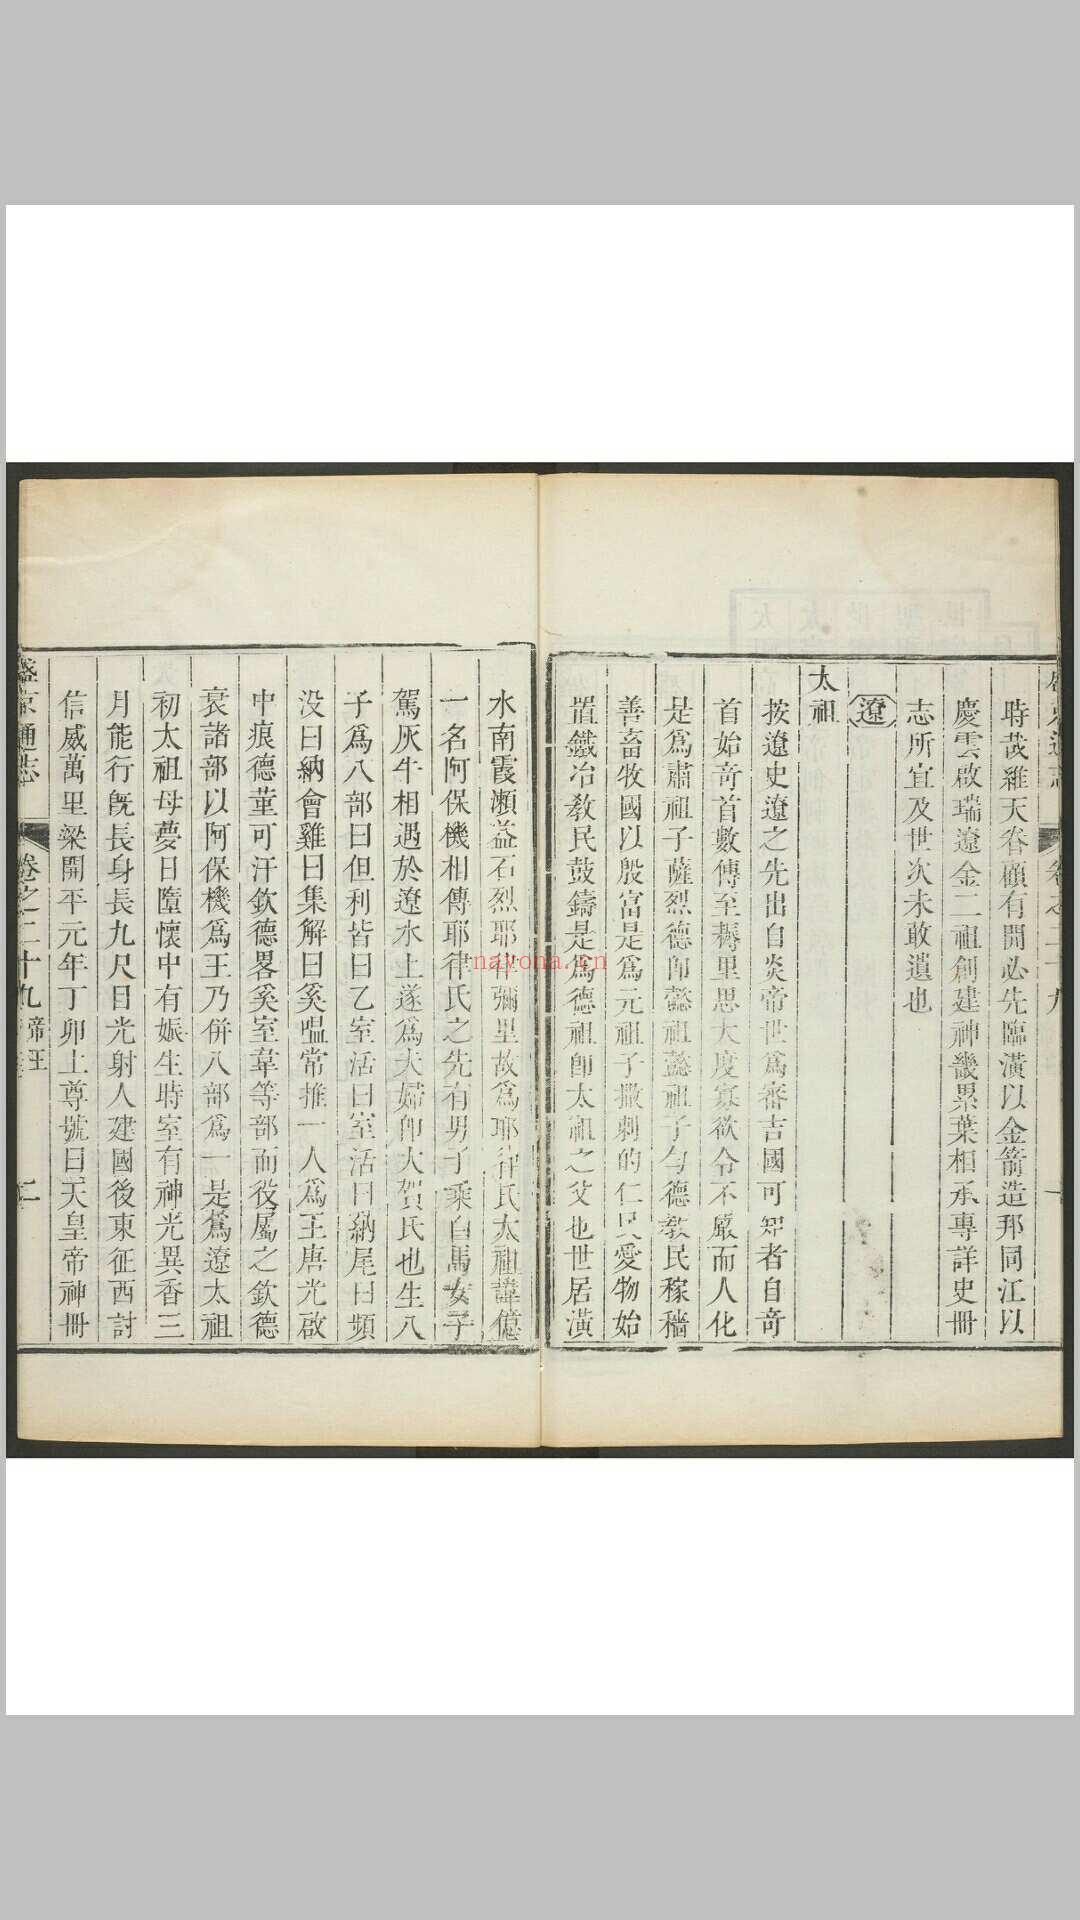 時哉雖天眷顧有開必先臨潢以金箭造邦同江以
慶雲啟瑞遼金二祖創建神畿累葉相承專詳史冊
志所宜及世次未敢遺也
遼
太祖
按遼史遼之先出自炎帝世爲審吉國可知者自奇
首始奇首數傳至耨里思大度寡欲令不嚴而人化
是爲肅祖子薩烈德卽懿祖懿祖子勻德教民稼穡
善畜牧國以殷富是爲元祖子撒剌的仁民愛物始
置鐵冶教民鼓鑄是爲德祖卽太祖之父也世居潢
水南霞瀨益石烈耶律彌里故爲耶律氏太祖諱億
一名阿保機相傳耶律氏之先有男子乘白馬女子
駕灰牛相遇於遼水上遂爲夫婦卽大賀氏也生八
子爲八部曰但利皆曰乙室活曰室活曰納尾曰頻
没曰納會雞曰集解曰奚嗢常推一人爲王唐光啟
中痕德菫可汗欽德畧奚室韋等部而役屬之欽德
衰諸部以阿保機爲王乃併八部爲一是爲遼太祖
初太祖母夢日墮懷中有娠生時室有神光異香三
月能行旣長身長九尺目光射人建國後東征西討
信威萬里梁開平元年丁卯上尊號曰天皇帝神冊
盛京通志 卷之二十九 帝王 二
nayona.cn